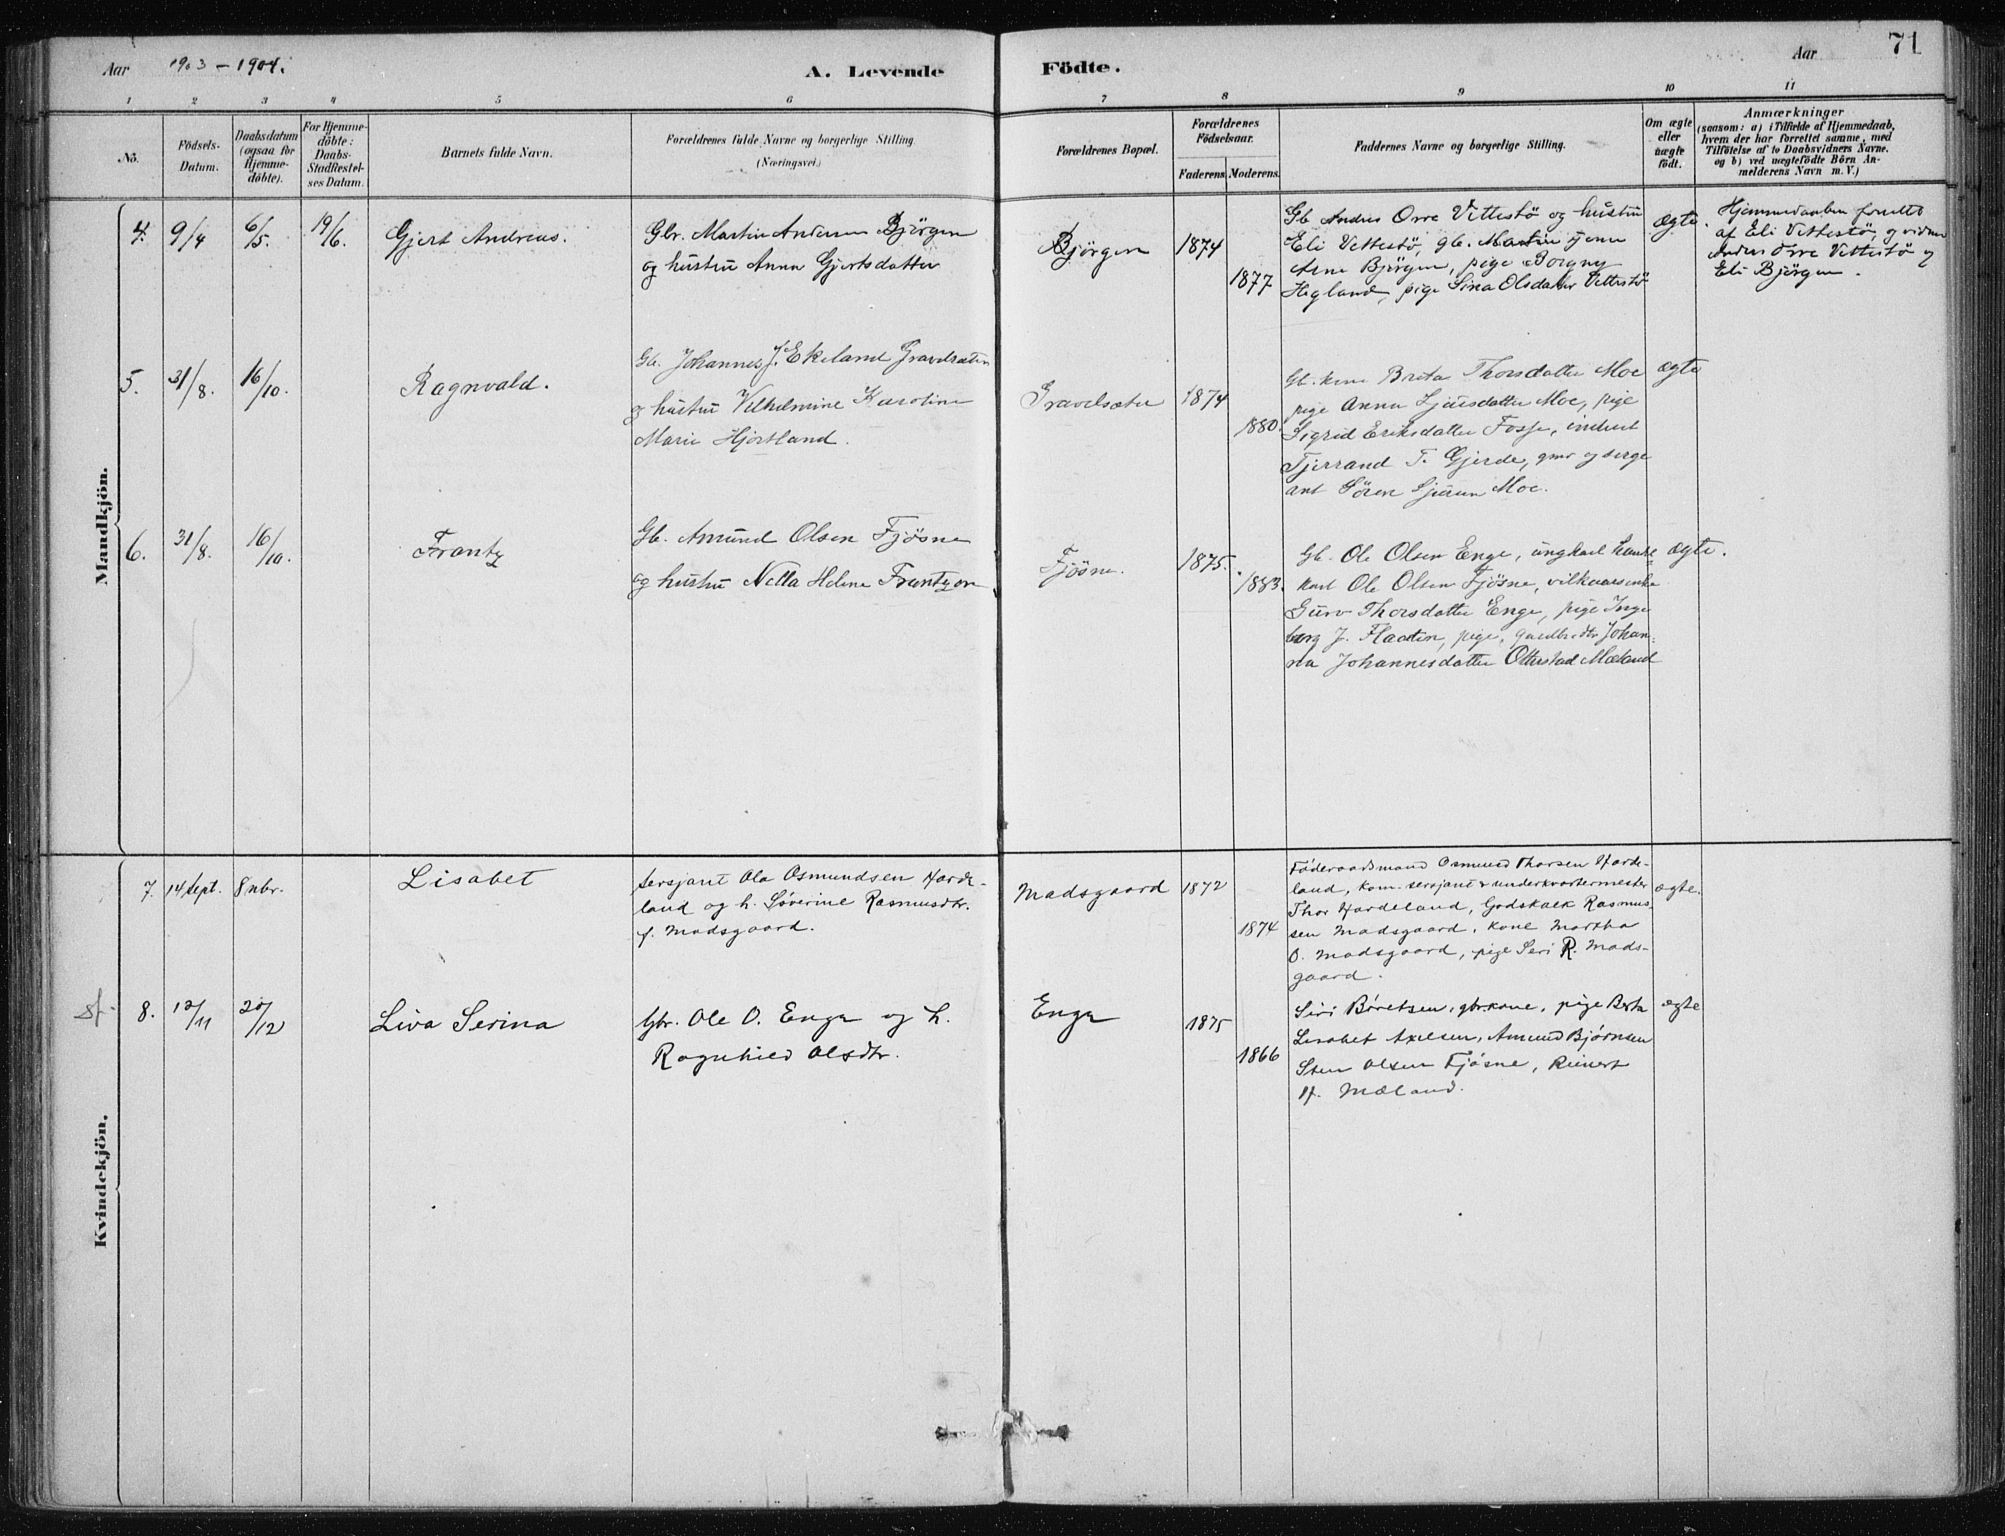 Aar 1903 - 1904.
A. Levende Födte.
Aar
71
1 2 3 4 5 6 7 8 9 10 11
No.
Födsels-Datum.
Daabsdatum (ogsaa för Hjemme-döbte).
For Hjemme-döbte: Daabs-Stadfæstel-ses Datum.
Barnets fulde Navn.
Forældrenes fulde Navne og borgerlige Stilling (Næringsvei.)
Forældrenes Bopæl.
Forældrenes Födselsaar.
Faderens Moderens.
Faddernes Navne og borgerlige Stilling.
Om ægte eller uægte födt.
Anmærkninger
(saasom: a) i Tilfælde af Hjemmedaab, hvem der har forrettet samme, med Tilföielse af to Daabsvidners Navne. og b) ved uægtefödte Börn An-melderens Navn m. V.)
Mandkjön.
4. 9/4 6/5. 19/6. Gjert Andreas.
Gbr. Martin Andersen Björgen
og hustru Anna Gjertsdatter
Björgen 1874 1877
Gb. Andres Orre Vettestö og hustru
Eli Vettestö, gb. Martin
Arne Björgen, pige Borgny
Hegland, pige Sina Olsdatter Vettestö
ægte
Hjemmedaaben forrettet
af Eli Vettestö, og vidner
Andres Orre Vettestö og
Eli Björgen.
5. 31/8. 16/10. Ragnvald.
Gb. Johannes J. Ekeland Gravelsæter
og hustru Vilhelmine Karoline
Marie Hjortland.
Gravelsæter 1874 1880.
Gb. kone Brita Thorsdatter Moe
pige Anna Sjursdatter Moe, pige
Sigrid Eriksdatter Fosse, inderst
Tjerrand T. Gjerde, gmr og serge
ant Sören Sjursen Moe.
ægte
6. 31/8. 16/10. Frantz
Gb. Amund Olsen Fjösne
og hustru Nella Helene Frantzen
Fjösne. 1875. 1883.
Gb. Ole Olsen Enge, ungkarl
Ole Olsen Fjösne, vilkaarsenke
Guro Thorsdatter Enge, pige Inge
borg J. Flaaten, pige, gaardbrdtr Johan=
na Johannesdatter Otterstad Mæland
ægte.
Kvindekjön.
7. 14 sept. 8 nbr. Lisabet
Sersjant Ola Osmundsen Harde-
land og h. Søverine Rasmusdtr.
f. Madsgaard.
Madsgaard 1872 1874
Föderaadsmand Osmund Thorsen Harde-
land, kom. sersjant & underkvartermester
Thor Hardeland, Godskalk Rasmus-
sen Madsgaard, kone Martha
O. Madsgaard, pige Seri R. Mads-
gaard.
ægte.
8. 12/11 20/12 Liva Serina
Gbr. Ole O. Enge og h.
Ragnhild Olsdtr.
Enge 1875 1866
Siri Børetsen, gbrkone, pige Berta
Lisabet Axelsen, Amund Bjørnsen
Sten Olsen Fjösne, Reinert
Mæland.
ægte